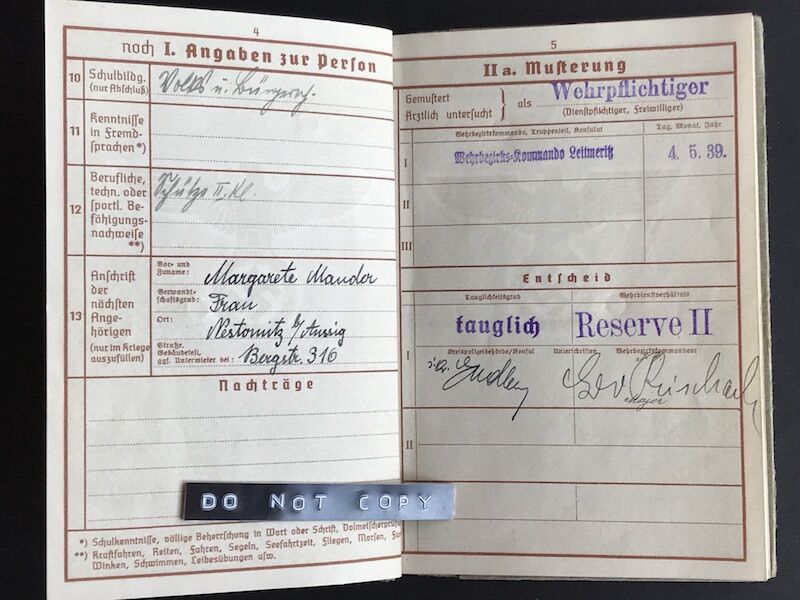 4
noch I. Angaben zur Person
10 Schulbildg. (nur Abschluß)
Volks u. Bürgersch.
11 Kenntnisse in Fremd-
sprachen *)
12 Berufliche,
techn. oder
sportl. Be-
fähigungs-
nachweise
**)
Schütze II. Kl.
13 Anschrift
der
nächsten
Ange-
hörigen
(nur im Kriege
auszufüllen)
Vor- und
Zuname: Margarete Mander
Verwandt-
schaftsgrad: Frau
Ort: Nestomitz b/Aussig
Straße,
Gebäudeteil,
ggf. Untermieter bei: Bergstr. 316
Nachträge
DO NOT COPY
*) Schulkenntnisse, völlige Beherrschung in Wort oder Schrift,
**) Kraftfahren, Reiten, Fahren, Segeln, Seefahrtzeit, Fliegen, Morsen,
Winken, Schwimmen, Leibesübungen usw.
5
II a. Musterung
Gemustert
Ärztlich untersucht
als Wehrpflichtiger
(Dienstpflichtiger, Freiwilliger)
Wehrbezirkskommando, Truppenteil, Konsulat
Tag, Monat, Jahr
I Wehrbezirks-Kommando Leitmeritz 4. 5. 39.
II
III
Entscheid
Tauglichkeitsgrad Wehrdienstverhältnis
tauglich Reserve II
I Kreispolizeibehörde/Konsul Unterschriften Wehrbezirkskommandeur
i.A.
Major
II